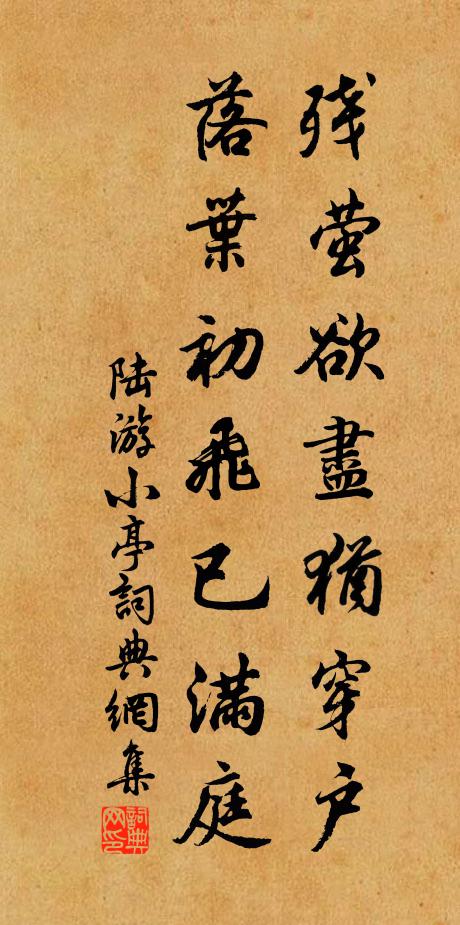 残萤欲盡猶穿户
落葉初飛已滿庭
陆游小亭詞典網集
詞典網印